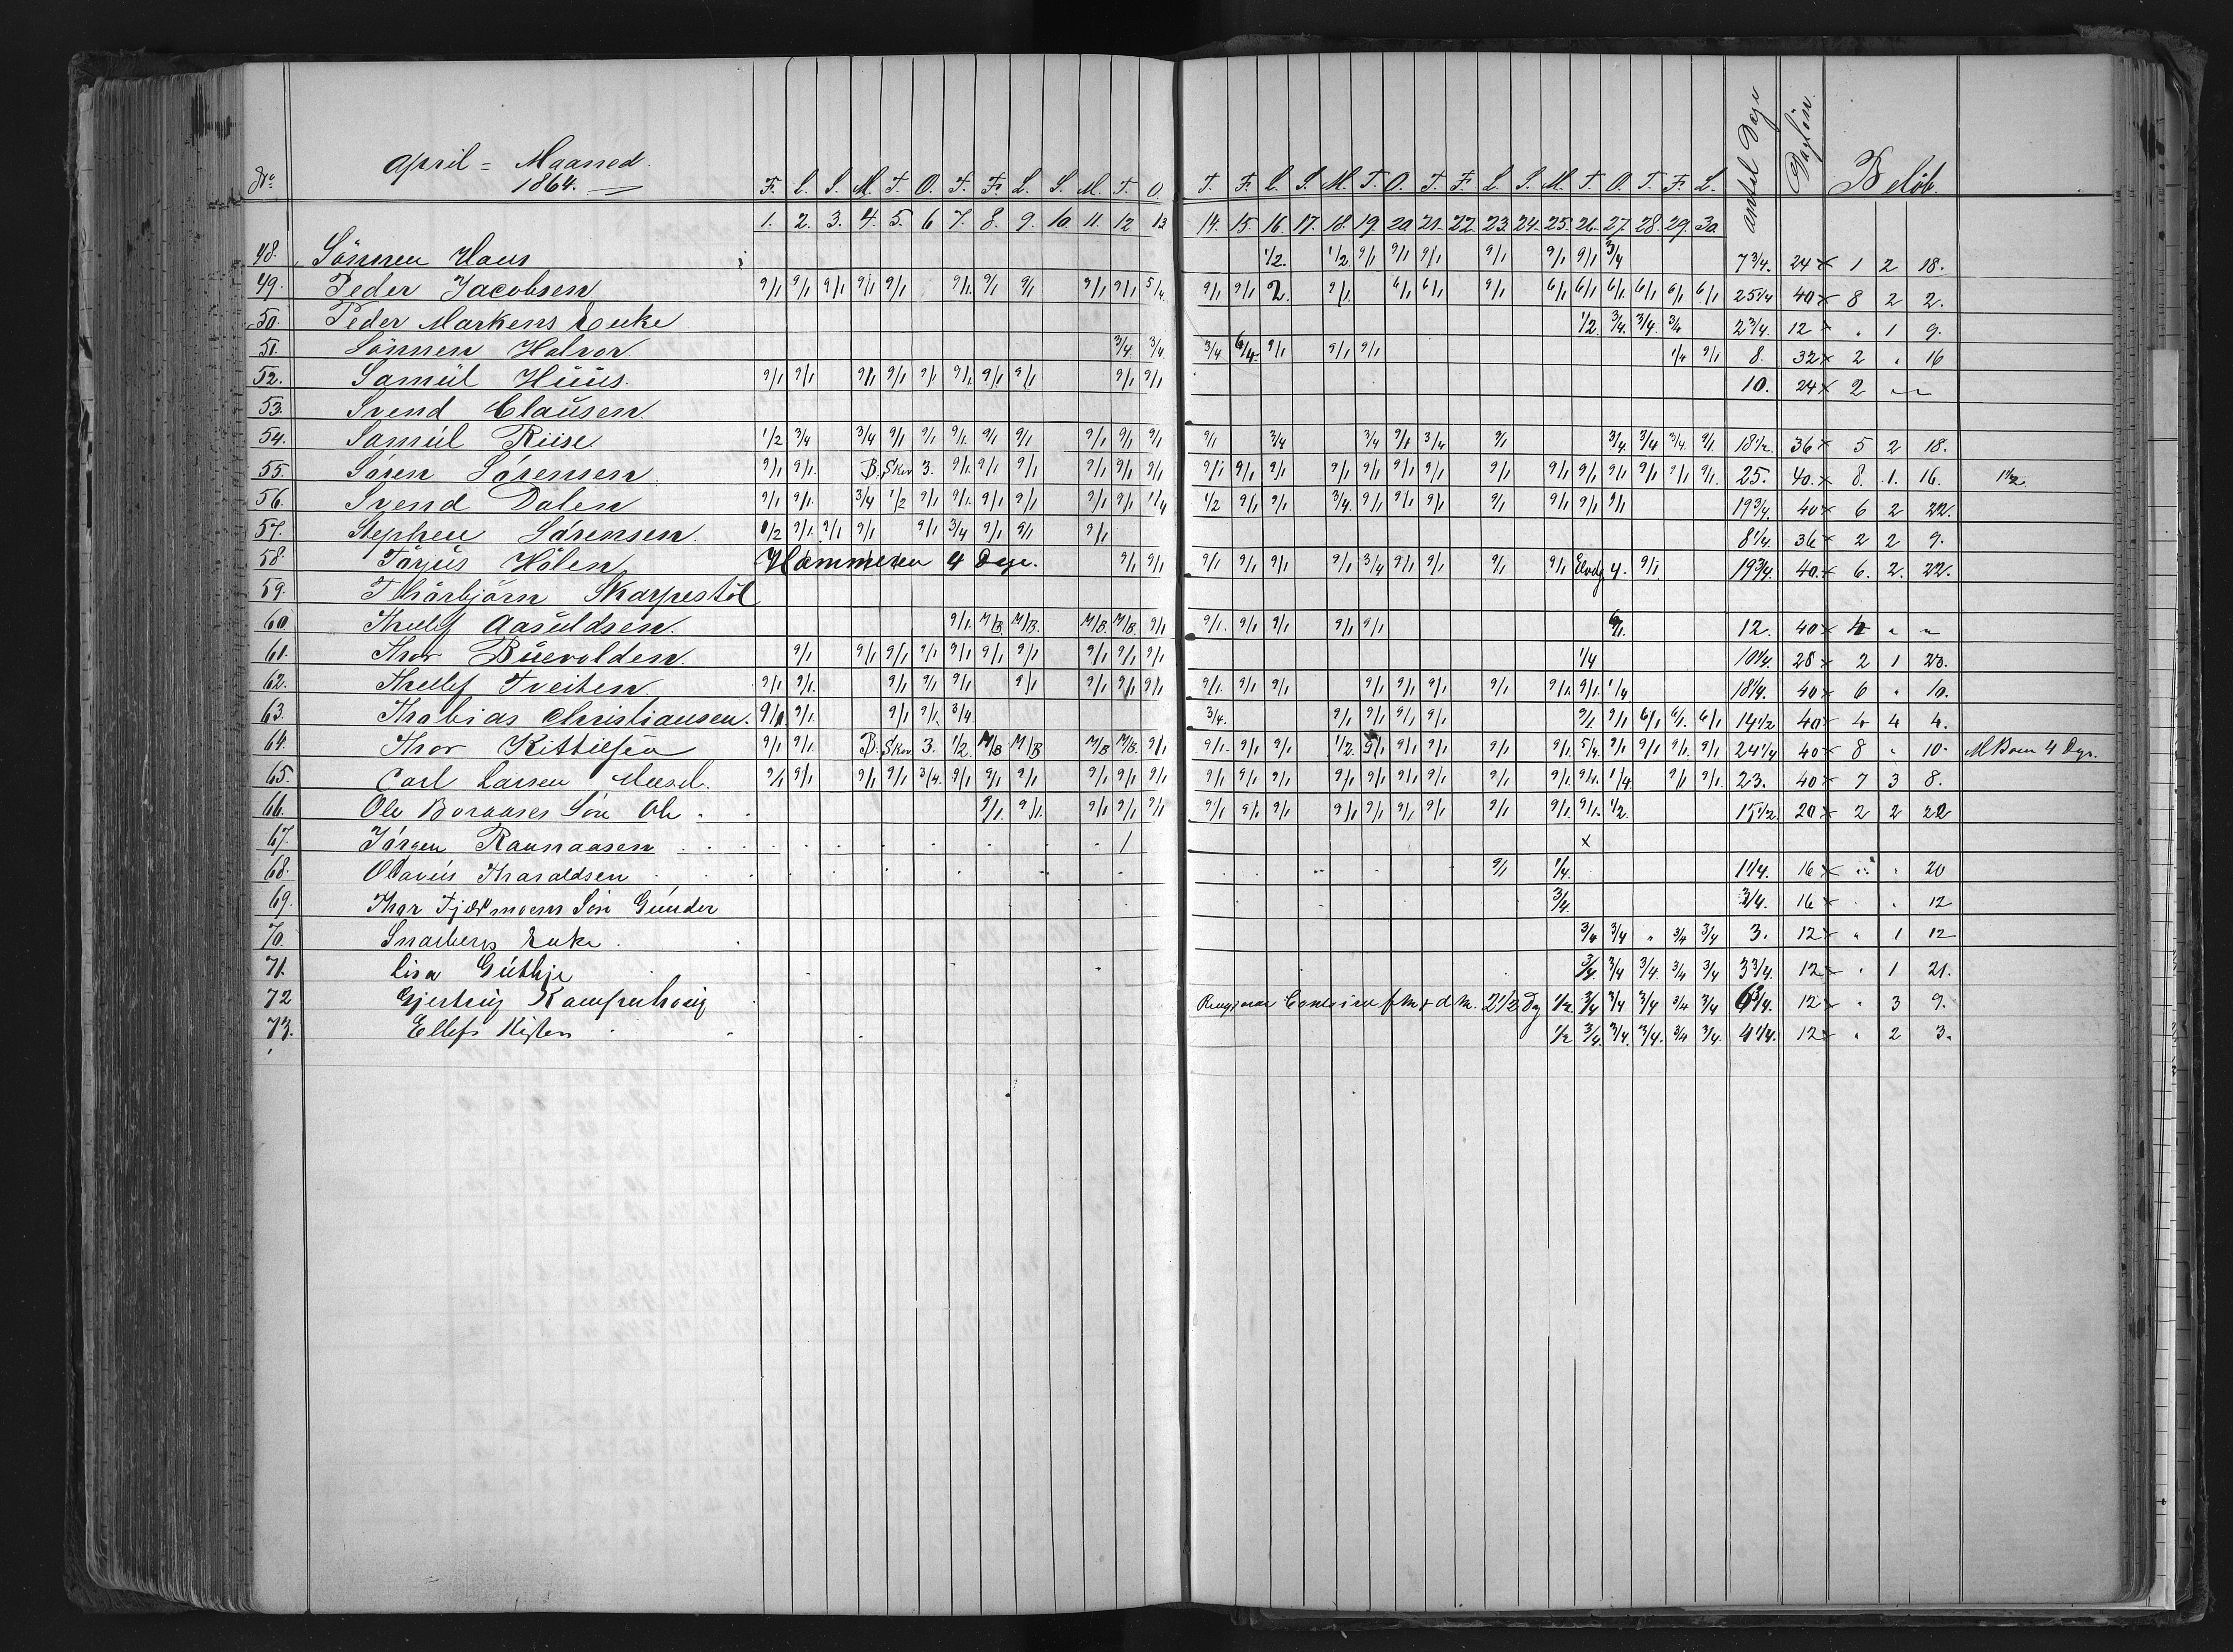 No April = Maaned. 1864. F. L. S. M. T. O. T. F. L. S. M. T. O. T. F. L. S. M. T. O. T. F. L. S. M. T. O. T. F. L. Antal Dage Dagløn. Beløb.
1. 2. 3. 4. 5. 6 7. 8. 9. 10. 11. 12 13 14. 15. 16. 17. 18. 19. 20 21. 22. 23. 24. 25. 26. 27. 28. 29. 30.
48. Sønnen Hans 1/2. 1/2. 9/1 9/1 9/1 9/1 9/1 9/1 3/4 7 3/4. 24 x 1 2 18.
49. Peder Jacobsen 9/1 9/1 9/1 9/1 9/1 9/1. 9/1 9/1 9/1 9/1 5/4 9/1 9/1 2. 9/1. 6/1 6/1 9/1 6/1 6/1 6/1. 6/1 6/1 6/1 25 1/4 40 x 8 2 2.
50. Peder Markens Enke 1/2. 3/4. 3/4. 3/4 2 3/4. 12 x " 1 9.
51. Sønnen Halvor 3/4. 3/4. 3/4 6/4. 9/1 9/1 9/1 1/4 9/1 8. 32 x 2 " 16
52. Samül Hüüs. 9/1 9/1 9/1 9/1 9/1 9/1. 9/1 9/1 9/1 9/1 10. 24 x 2 " "
53. Svend Claüsen.
54. Samül Riise 1/2 3/4 3/4 9/1 9/1 9/1. 9/1 9/1 9/1 9/1 9/1 9/1 3/4 3/4 9/1 3/4 9/1 3/4. 3/4 3/4 9/1 18 1/2 36 x 5 2 18.
55. Søren Sørensen. 9/1 9/1. B. Skov 3. 9/1. 9/1 9/1 9/1 9/1 9/1 9/1 9/1 9/1 9/1 9/1 9/1 9/1 9/1 9/1 9/1 9/1 9/1 9/1 9/1. 25. 40. x 8. 1. 16. 1 1/2
56. Svend Dalen 9/1 9/1. 3/4 1/2 9/1 9/1. 9/1 9/1 9/1 9/1 1/4 1/2 9/1 9/1 3/4. 9/1 9/1 9/1 9/1 9/1 9/1 9/1 19 3/4. 40 x 6 2 22.
57. Stephen Sørensen. 1/2 9/1. 9/1 9/1 9/1 3/4 9/1 9/1 9/1 8 1/4. 36 x 2 2 9.
58. Tarjus Hølen Hammeren 4 Dage. 9/1 9/1 9/1 9/1 9/1 9/1 3/4 9/1 9/1 9/1 9/1 4. 9/1 19 3/4. 40. x 6. 2. 22.
59. Thorbjørn Skarpestøl
60. Thellef Aasuldsen. 9/1. M/B. M/B. M/B. M/B. 9/1 9/1. 9/1 9/1 9/1 9/1 9/1. 12. 40 x 4 " "
61. Thor Büevolden. 9/1 9/1 9/1 9/1 9/1 9/1 9/1 9/1 9/1 9/1 1/4 10 1/4. 28 x 2 1 23.
62. Thellef Tveiten. 9/1 9/1. 9/1 9/1 9/1 9/1 9/1 9/1 9/1 9/1. 9/1 9/1 9/1 9/1 9/1 9/1 9/1. 9/1. 1/4 18 1/4. 40 x 6 " 10.
63. Thobias Christiansen. 9/1. 9/1. 9/1 9/1. 3/4. 3/4. 9/1 9/1 9/1 9/1 9/1 9/1 6/1 6/1. 6/1 14 1/2 40 x 4 4 4.
64. Thor Kittilsen 9/1 9/1. B. Skov 3. 1/2. M/B M/B M/B M/B. 9/1 9/1. 9/1 9/1 1/2 9/1 9/1 9/1 9/1 9/1. 5/4. 9/1 9/1 9/1. 9/1 24 1/4 40 x 8 " 10. M Bom 4 Dge.
65. Carl Larsen Meesel. 9/1 9/1 9/1 9/1 3/4. 9/1 9/1 9/1 9/1 9/1 9/1 9/1 9/1 9/1 9/1 9/1 9/1 9/1 9/1 9/1. 9/1. 1/4. 9/1 9/1. 23. 40 x 7 3 8.
66. Ole Boraases Søn Ole 9/1. 9/1. 9/1 9/1 9/1 9/1 9/1 9/1 9/1 9/1 9/1 9/1 9/1 9/1. 9/1. 1/2. 15 1/2. 20 x 2 2 22
67. Jørgen Raunaasen 1 x
68. Olavüs Tharaldsen 9/1 1/4. 1 1/4. 16 x " " 20
69. Thor Fjældmoens Søn Günder 3/4. 3/4. 16 x " 12
70. Snarbergs Enke. 3/4 3/4 " 3/4 3/4 3. 12 x " 1 12
71. Lisa Güthje 3/4. 3/4 3/4. 3/4 3/4 3 3/4. 12 x " 1 21.
72 Gjertrüg 2 1/2 Dg 1/2. 3/4 3/4 3/4 3/4 3/4 6 3/4. 12 x " 3 9.
73. Ellefs Kisten 1/2 3/4. 3/4. 3/4. 3/4 3/4. 4 1/4. 12 x " 2 3.